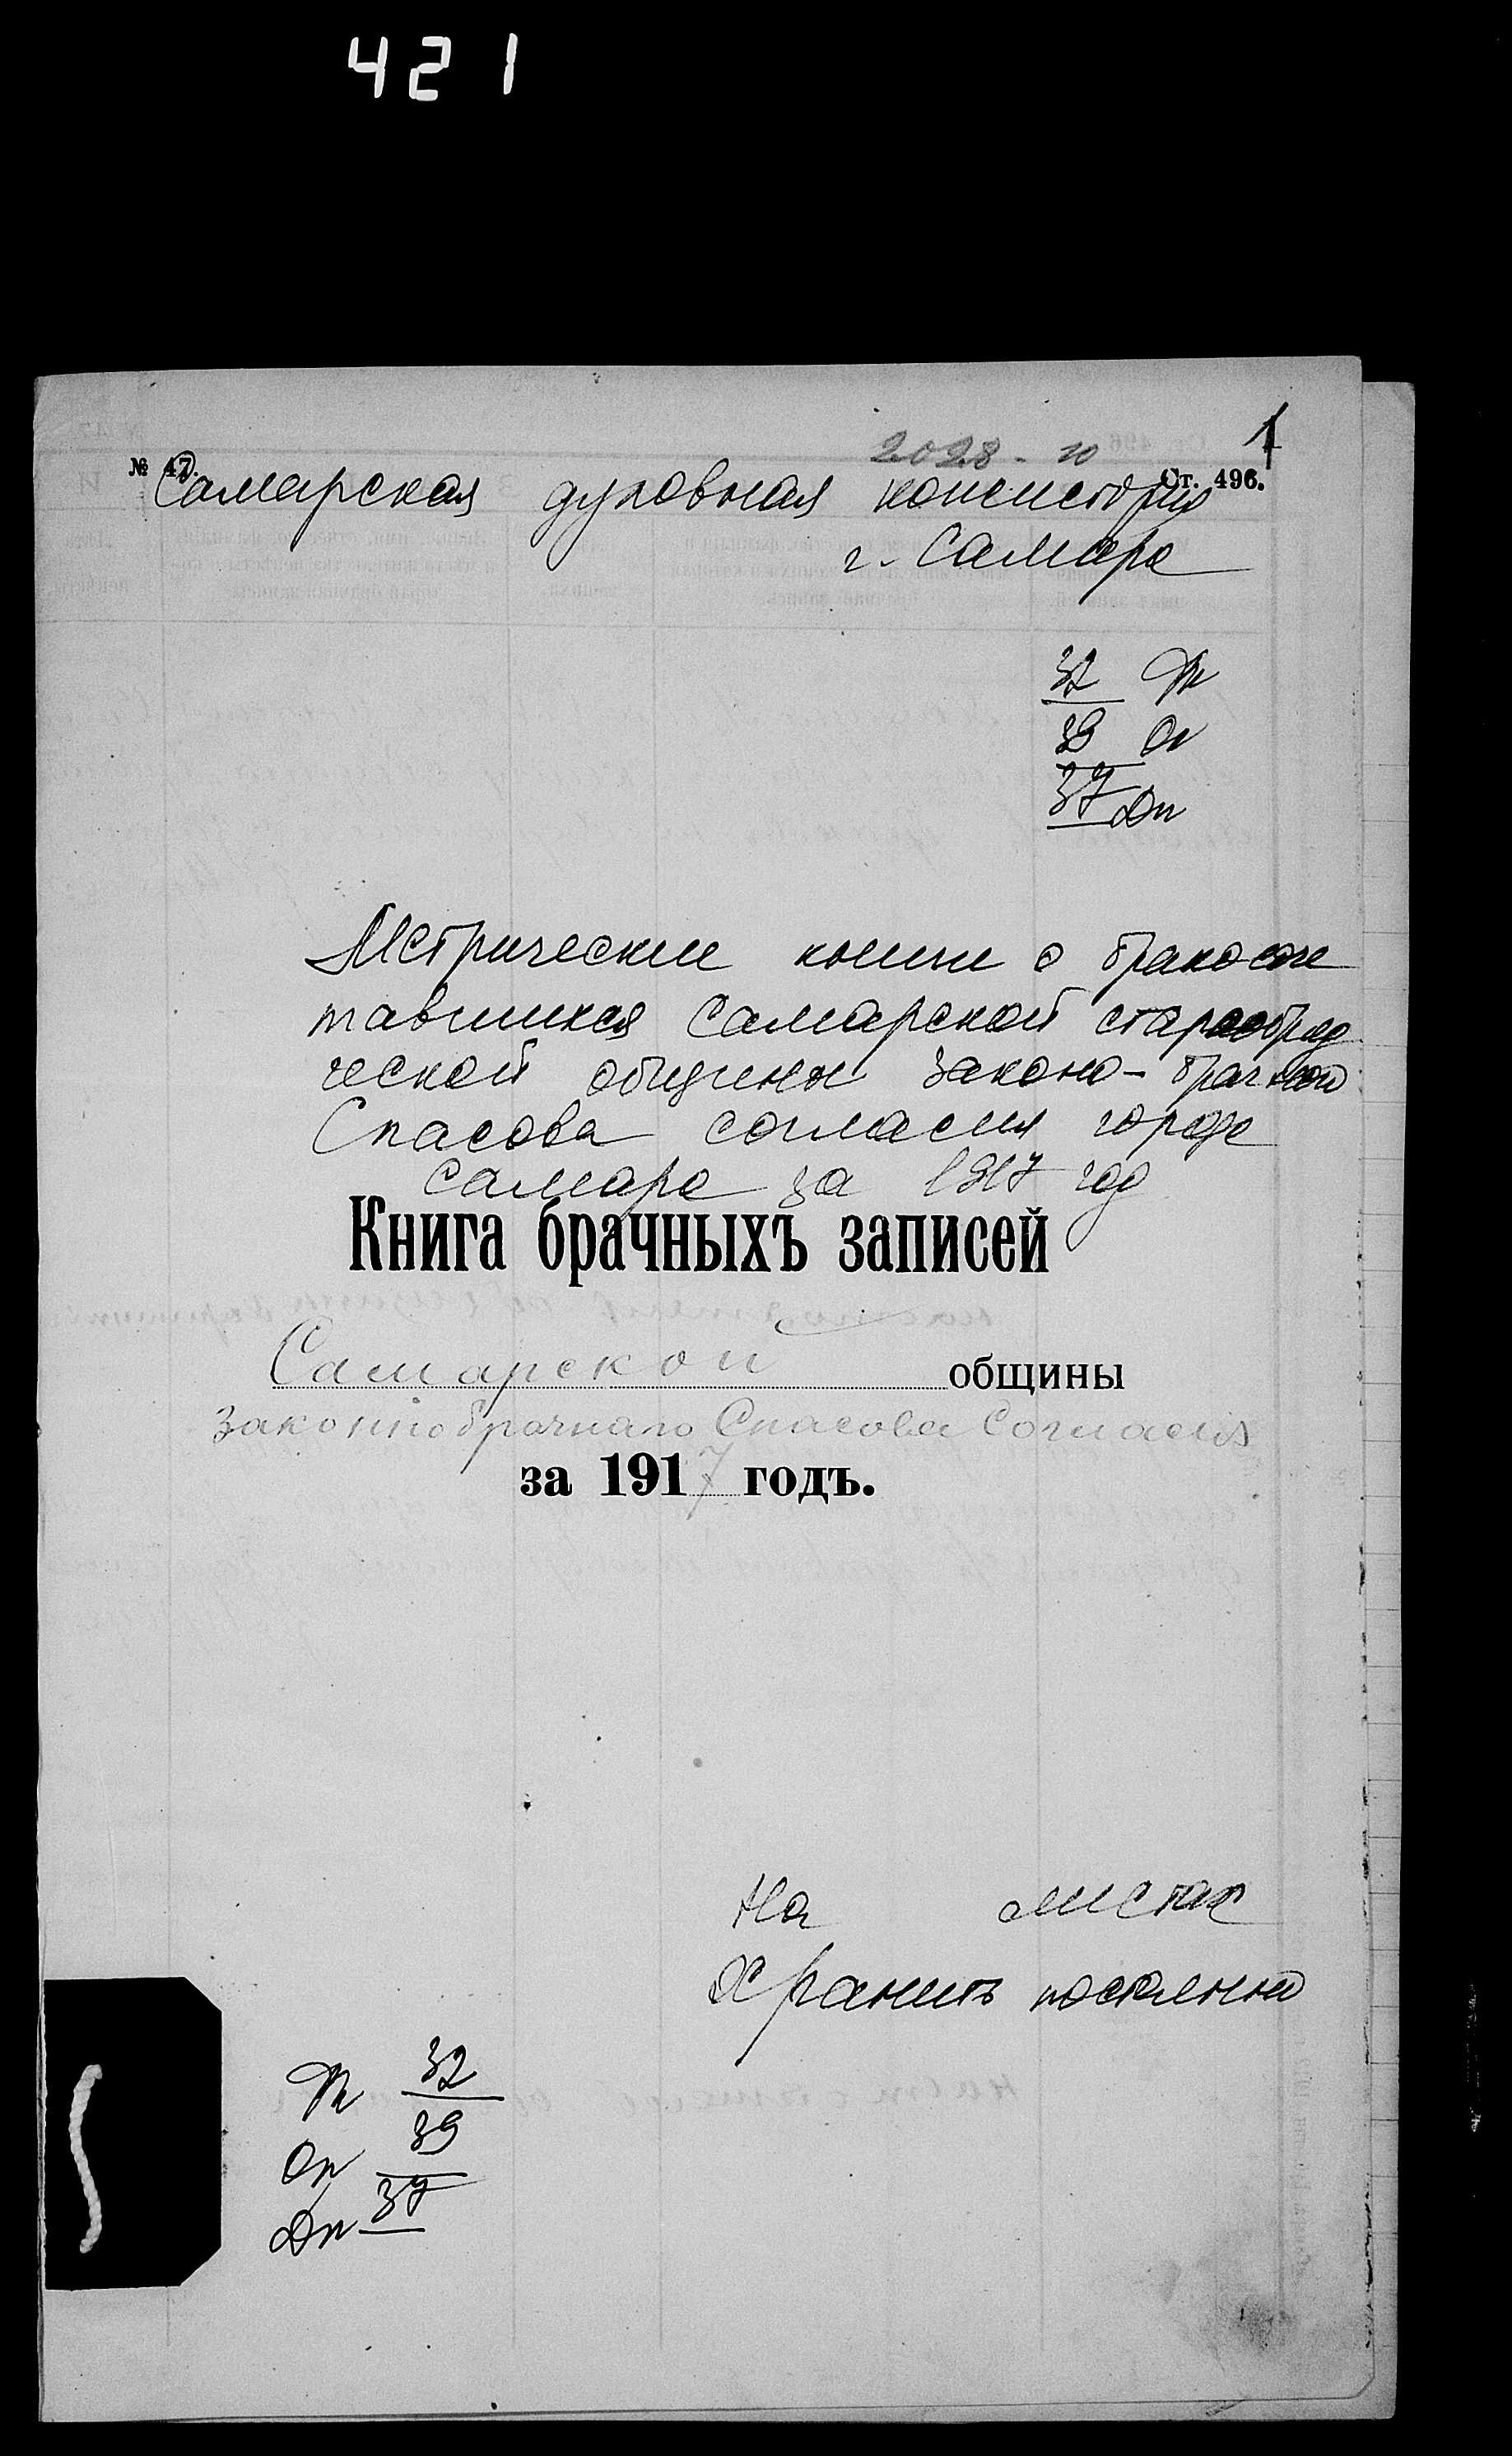 421
1
2028-10
№ 47. Ст. 496.
Самарская духовная консистория
г. Самара
32 Ф
39 Оп
37 Дп
Метрические книги о бракосоче
тавшихся Самарской старообряд
ческой общины законо-брачной
Спасова согласия городе
Самаре за 1917 год
Книга брачныхъ записей
Самарской общины
Законнобрачнаго Спасова Согласия
за 1917 годъ.
На листах
Хранить постоянно
Ф 32
Оп 39
Дп 37